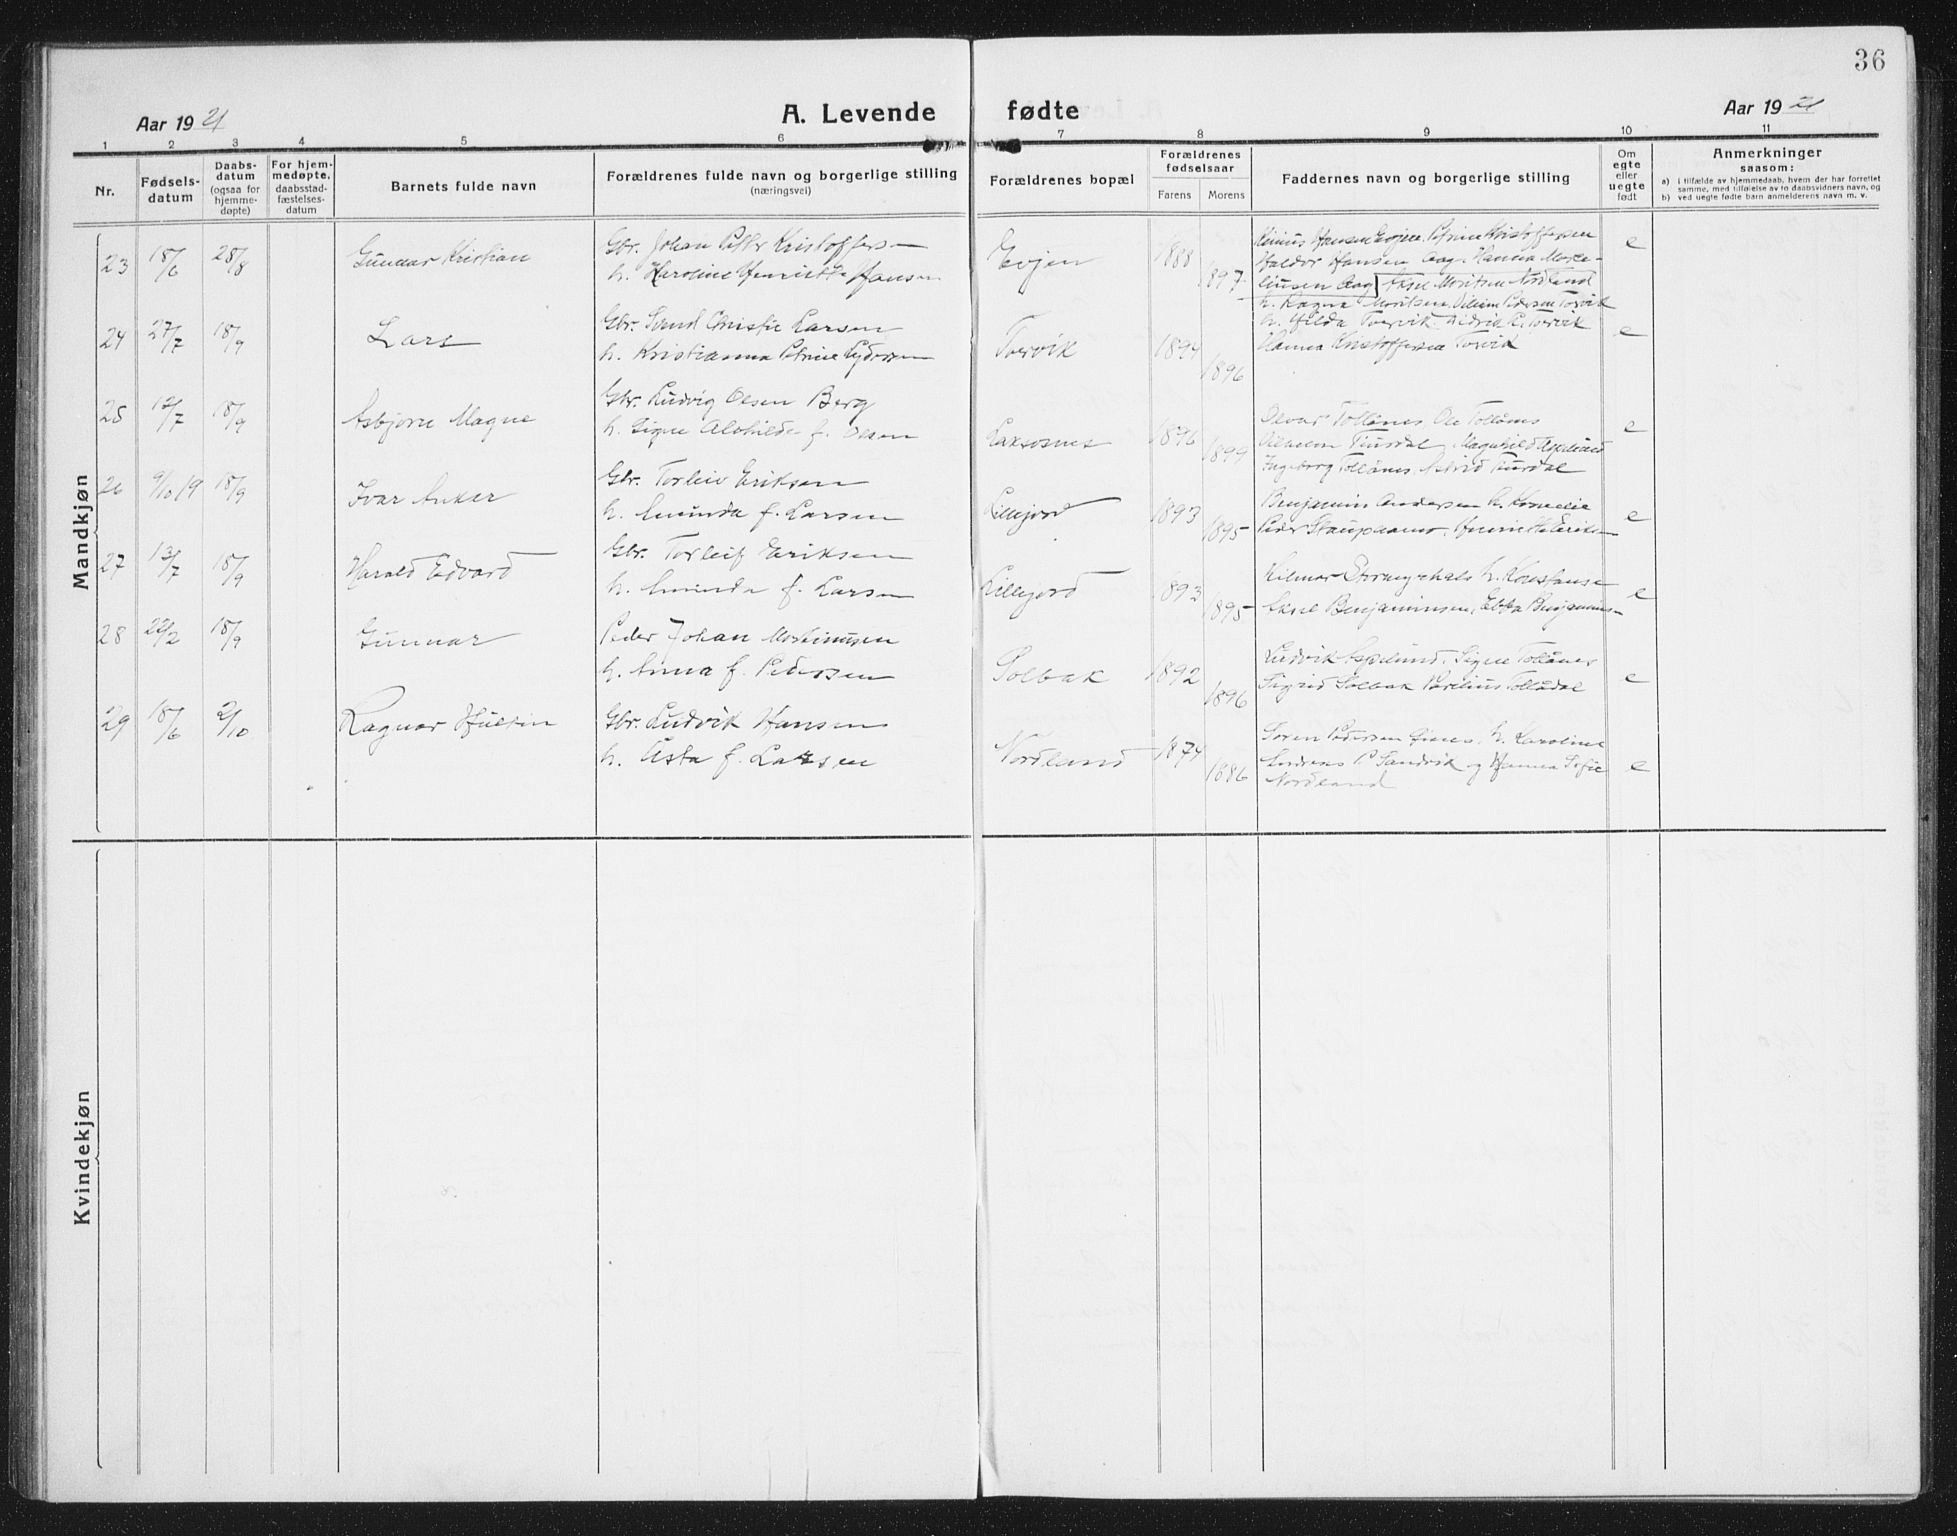 36
Aar 1921
A. Levende fødte
Aar 1921
1 2 3 4 5 6 7 8 9 10 11
Nr.
Fødsels-
datum
Daabs-
datum
(ogsaa for
hjemme-
døpte)
For hjem-
medøpte,
daabsstad-
fæstelses-
datum
Barnets fulde navn
Forældrenes fulde navn og borgerlige stilling
(næringsvei)
Forældrenes bopæl
Forældrenes
fødselsaar
Farens Morens
Faddernes navn og borgerlige stilling
Om
egte
eller
uegte
født
Anmerkninger
saasom:
a) i tilfælde av hjemmedaab, hvem der har forrettet
samme, med tilføielse av to daabsvidners navn, og
b) ved uegte fødte barn anmelderens navn m. v.
Mandkjøn
23 18/6 28/8 Gunnar Kristian
Gbr. Johan Petter Kristoffersen
h. Karoline Henriette Hansen
Evjen 1888 1897
Hansen Evjen, Petrine Kristoffersen
Haldor Hansen Aag, Hanna Morte-
liussen Aag e
24 27/7 18/9 Lars
Gbr. Christie Larsen
h. Kristianna Petrine
Torvik 1894 1896
Aksel Moritsen Nordland
h. Ragna Moritsen, Pedersen Torvik
h. Hilda Torvik, Torvik
Hanna Kristoffersen Torvik e
25 12/7 18/9 Asbjørn Magne
Gbr. Ludvig Olsen Berg
h. Signe Alvhilde f. Olsen
Laksosnes 1896 1899
Tollånes, Ole Tollånes
Vilhelm, Magnhild Asplund
Ingeborg Tollånes, Astrid e
26 9/10 19 18/9 Ivar Anker
Gbr. Torleiv Eriksen
h. Aminda f. Larsen
Lillejord 1893 1895
Benjamin Andersen h. Kornelie
Peder e
27 13/7 18/9 Harald Edvard
Gbr. Torleif Eriksen
h. Aminda f. Larsen
Lillejord 1893 1895
Hilmar h. Konstanse
Aksel Benjaminsen, Benjamins- e
28 22/2 18/9 Gunnar
Peder Johan Mortinussen
h. Anna f. Pedersen
Solbak 1892 1896
Ludvik Asplund, Signe Tollånes
Sigrid Solbak Tollådal e
29 18/6 2/10 Ragnar Hultin
Gbr. Ludvik Hansen
h. Asta f. Larsen
Nordland 1874 1886
Søren Pedersen, h. Karoline
Andreas P. Sandvik og Hanna Sofie
Nordland e
Kvindekjøn